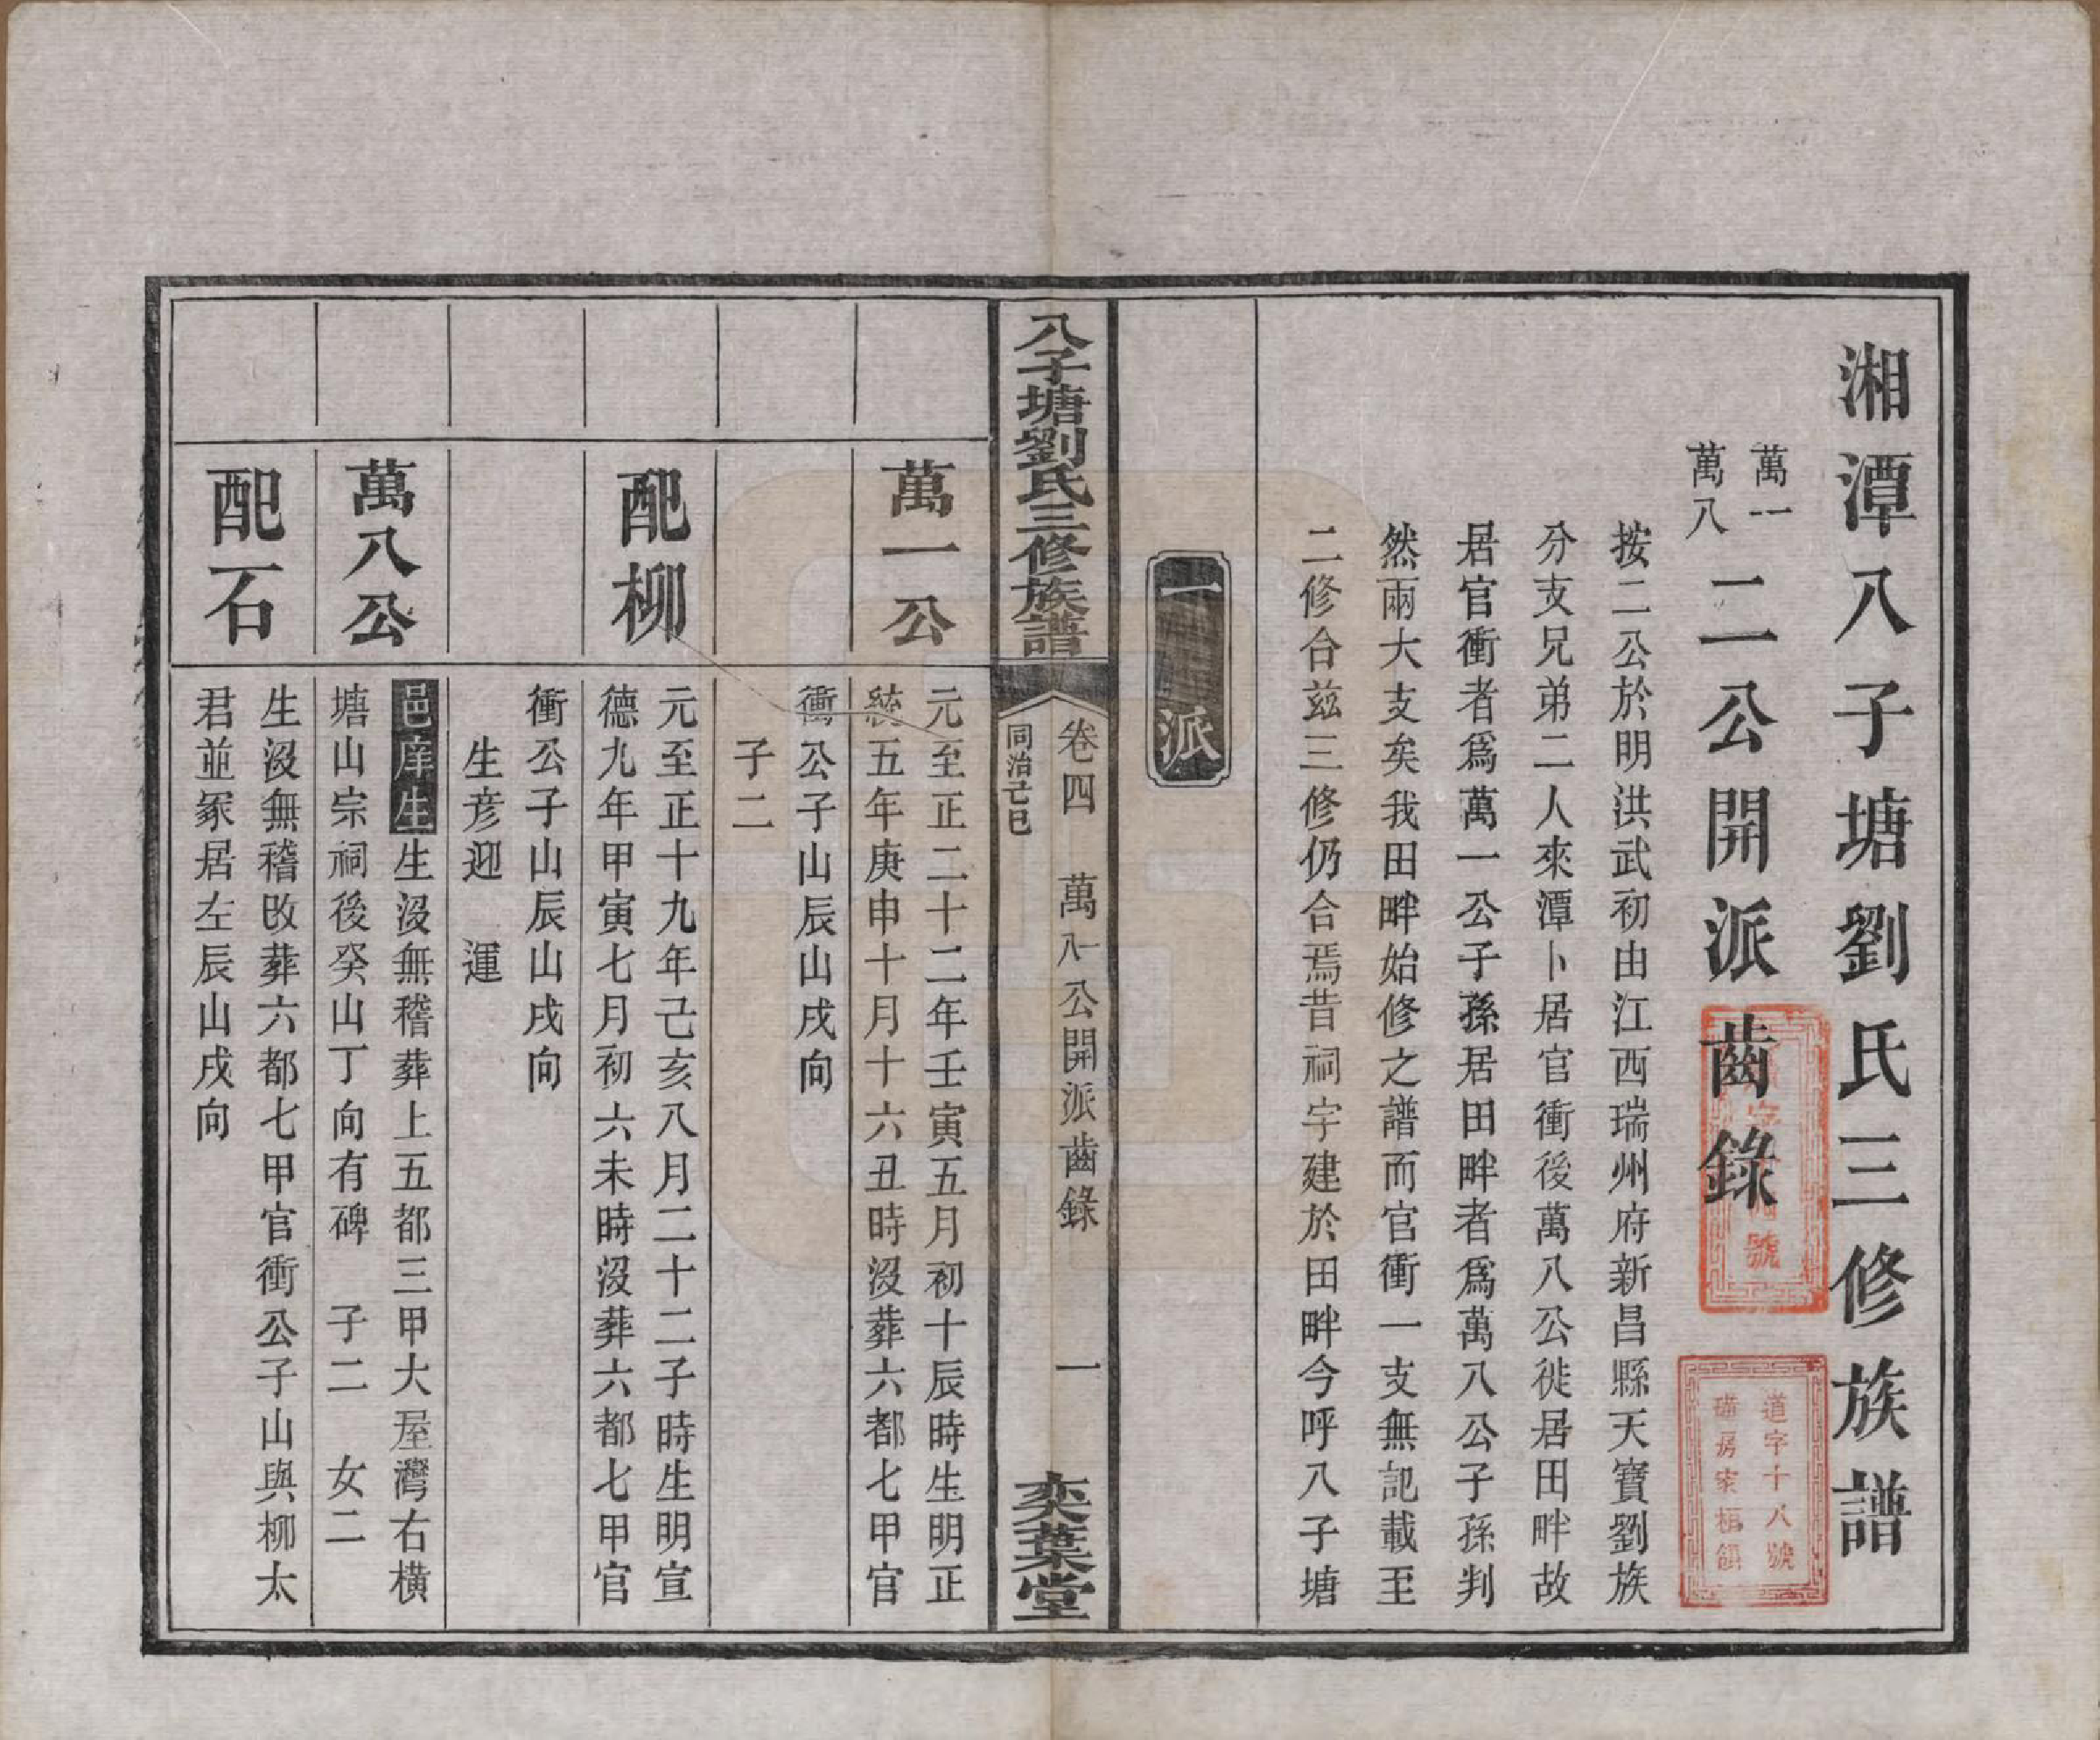 湘潭八子塘劉氏三修族譜
萬一
萬八
二公開派齒錄
按二公於明洪武初由江西瑞州府新昌縣天寶劉族
分支兄弟二人來潭卜居官衝後萬八公徙居田畔故
居官衝者爲萬一公子孫居田畔者爲萬八公子孫判
然兩大支矣我田畔始修之譜而官衝一支無記載至
二修合茲三修仍合焉昔祠宇建於田畔今呼八子塘
道字十八號
號
一派
八子塘劉氏三修族譜
卷四 萬一八公開派齒錄 一
同治己巳
奕葉堂
萬一公
元至正二十二年壬寅五月初十辰時生明正
統五年庚申十月十六丑時沒葬六都七甲官
衝公子山辰山戌向
子二
配柳
元至正十九年己亥八月二十二子時生明宣
德九年甲寅七月初六未時沒葬六都七甲官
衝公子山辰山戌向
生彦迎 運
萬八公
邑庠生生沒無稽葬上五都三甲大屋灣右橫
塘山宗祠後癸山丁向有碑 子二 女二
配石
生沒無稽改葬六都七甲官衝公子山與柳太
君並冢居左辰山戌向